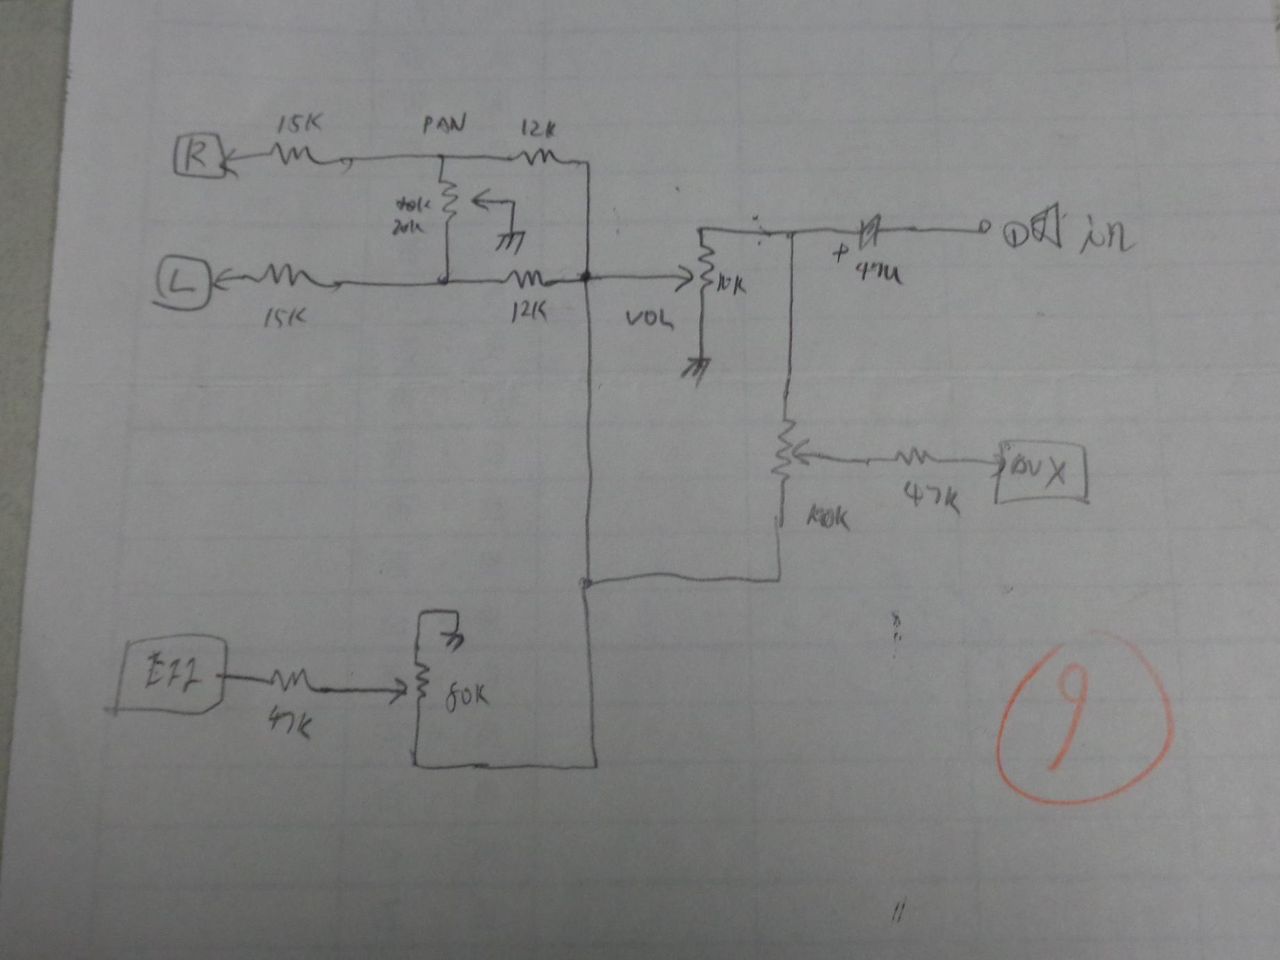 15K PAN 12K
R
20K
L
15K 12K VOL 10K + 47u in
47K AUX
100K
EFF
47K 50K
9